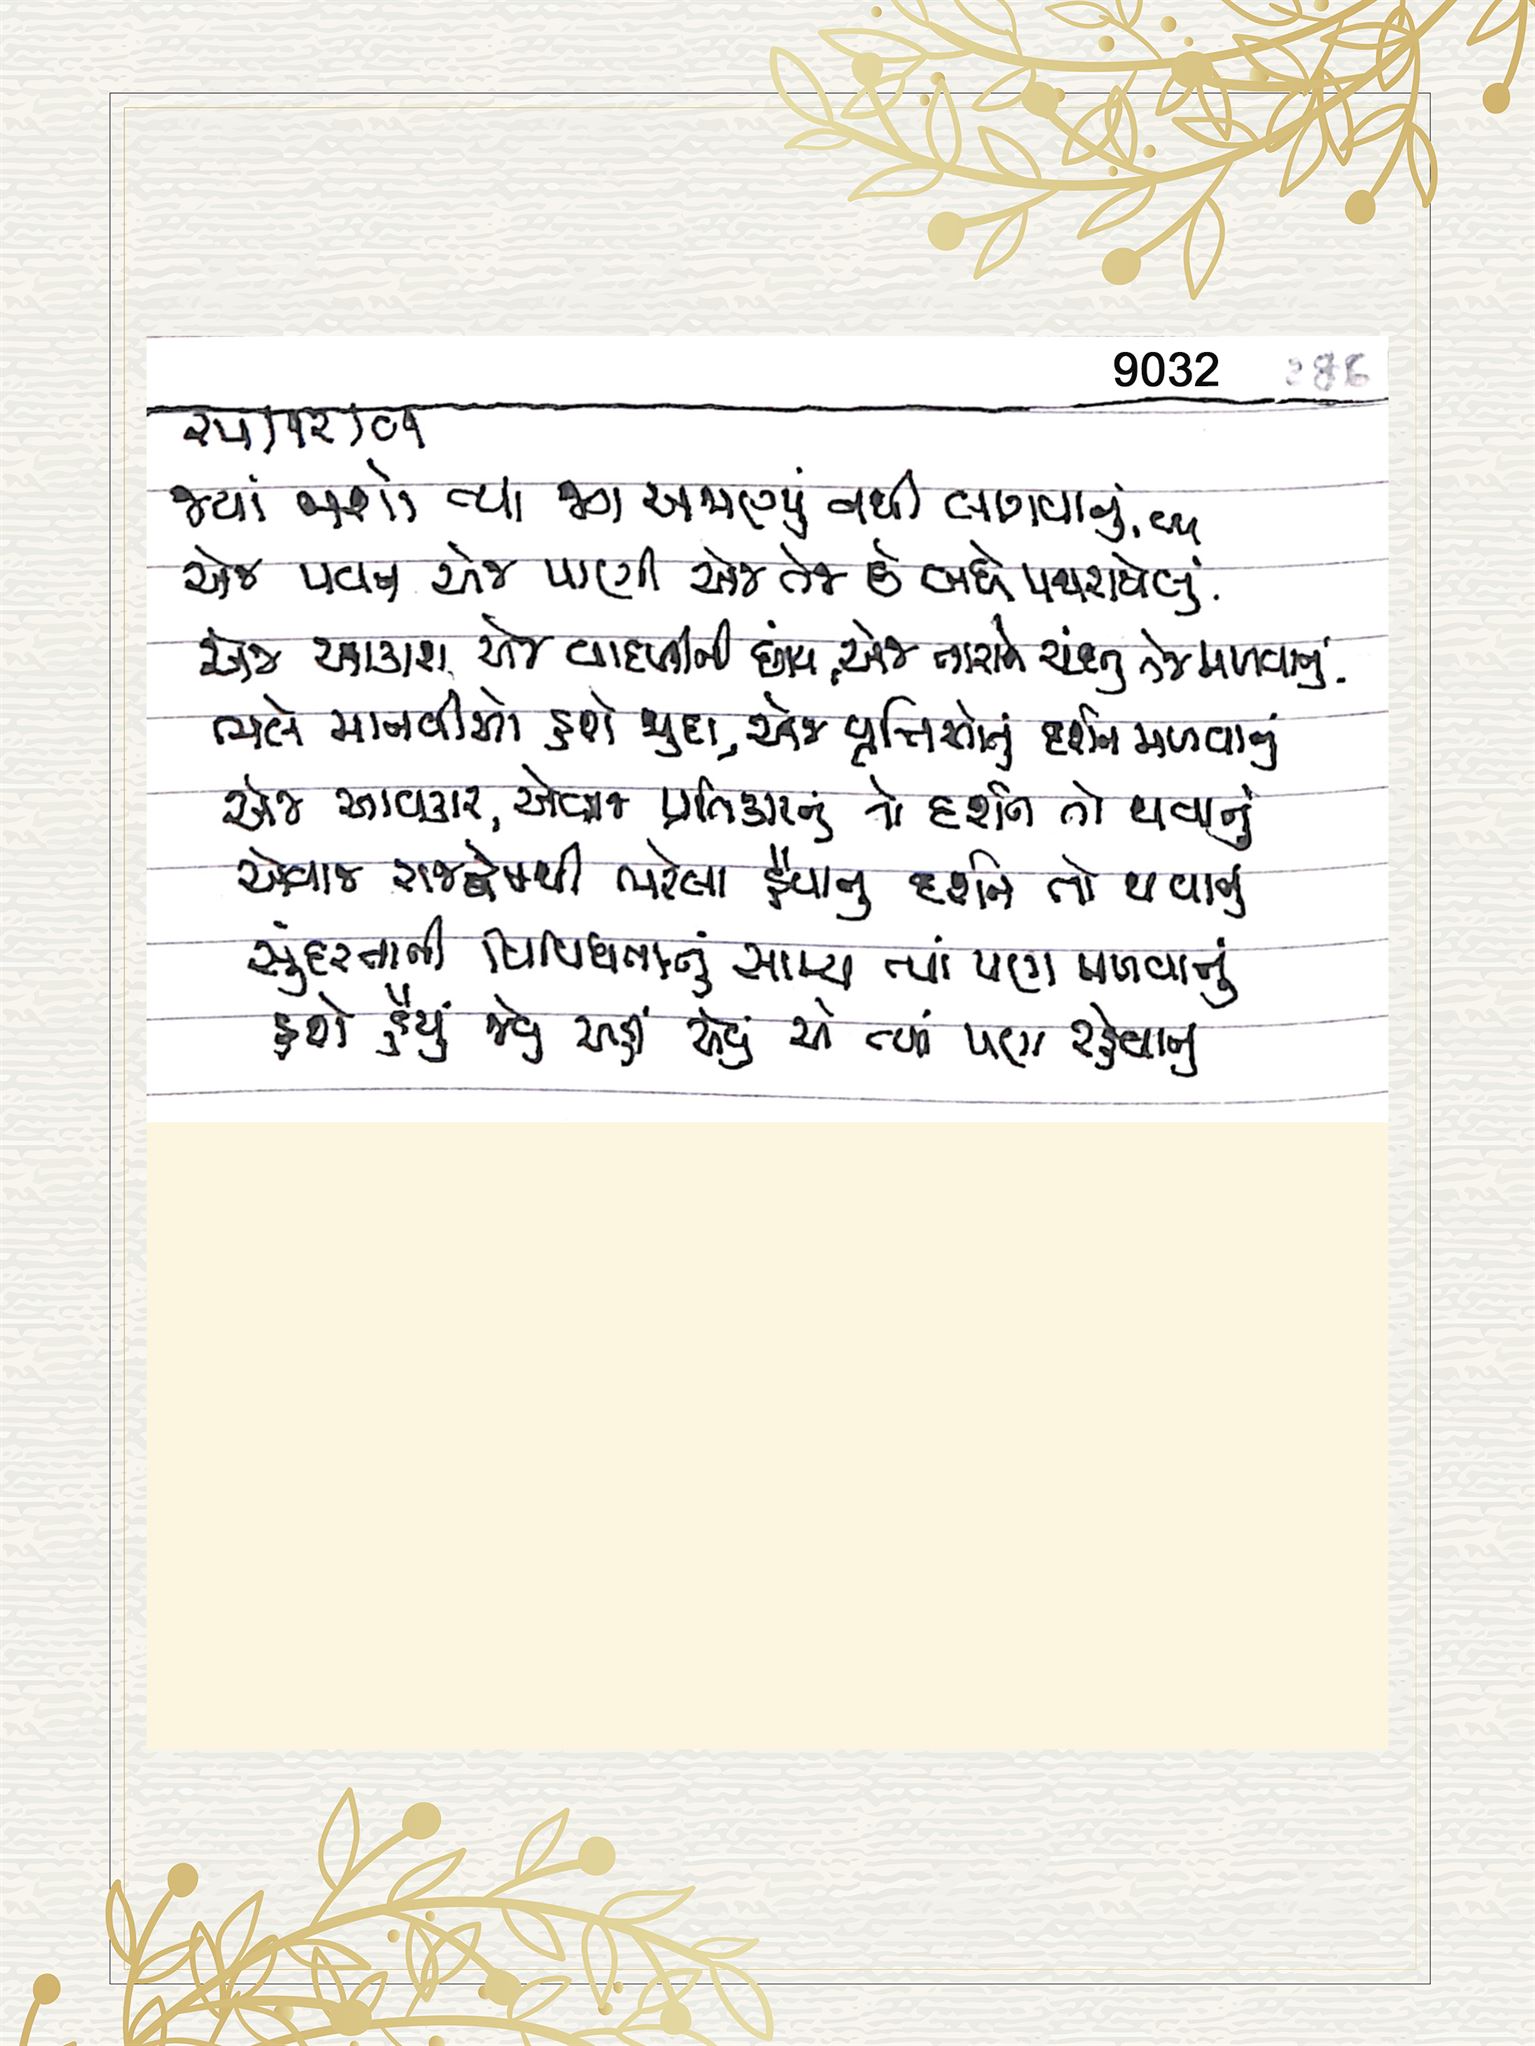 9032
જ્યાં જાશો ત્યાં જગ અજાણ્યું નથી લાગવાનું.
એજ પવન એજ પાણી એજ તેજ છે બધે પથરાયેલું.
એજ આકાશ એજ વાદળીની છાંય, એજ તારાને ચંદ્રનુ તેજ મળવાનું.
ભલે માનવીઓ હશે જુદા, એજ વૃત્તિઓનું દર્શન મળવાનું
એજ આવકાર, એવાજ પ્રતિકારનું તો દર્શન તો થવાનું
એવાજ રાજદ્વેષથી ભરેલા હૈયાનુ દર્શન તો થવાનું
સુંદરતાની વિવિધતાનું સામ્ય ત્યાં પણ મળવાનું
હશે હૈયું જેવું અહીં એવું એ ત્યાં પણ રહેવાનું